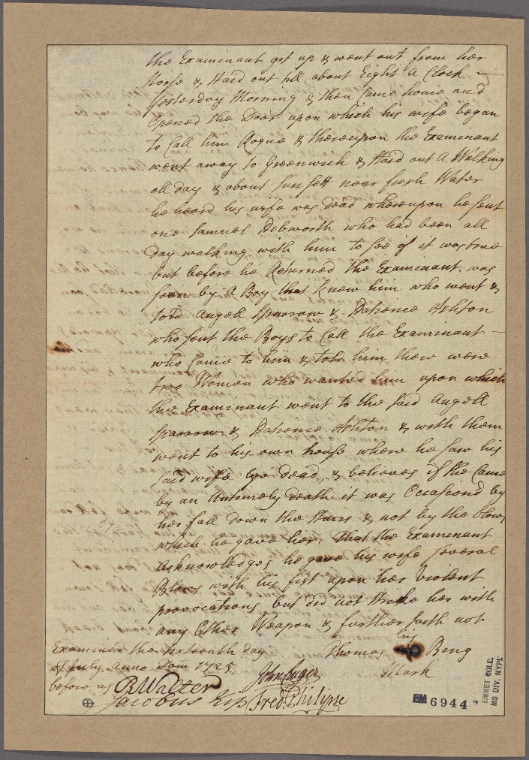 the Examinant got up & went out from her
house & Staid out till about Eight a Clock
Yesterday Morning & then Came home and
opened the Door upon which his wife began
to Call him Rogue & thereupon the Examinant
went away to Greenwich & Staid out a Walking
all day & about Sun Sett near fresh Water
he heard his wife was dead whereupon he sent
one Samuel Debworth who had been all
day walking with him to See if it was true
but before he Returned the Examinant was
Seen by a Boy that knew him who went &
told Angell Sparrow & Patience Ashton
who Sent the Boys to Call the Examinant
who Came to him & told him there were
two Women who wanted him upon which
the Examinant went to the Said Angell
Sparrow & Patience Ashton & with them
went to his own house where he Saw his
Said wife lye Dead, & believes if She Came
by an Untimely death it was Occasiond by
her fall down the Stairs & not by the blows
which he gave her, that the Examinant
acknowledges he gave his wife Several
Blows with his fist upon her Violent
provocations, but did not Strike her with
any Other Weapon & further Saith not
Examined this day
of July Anno Dom
before us
Thomas his Mark Beng
B Walter
Jacobus Kip
Fred Philipse
EM 6944
EMMET COLL.
MS DIV, NYPL